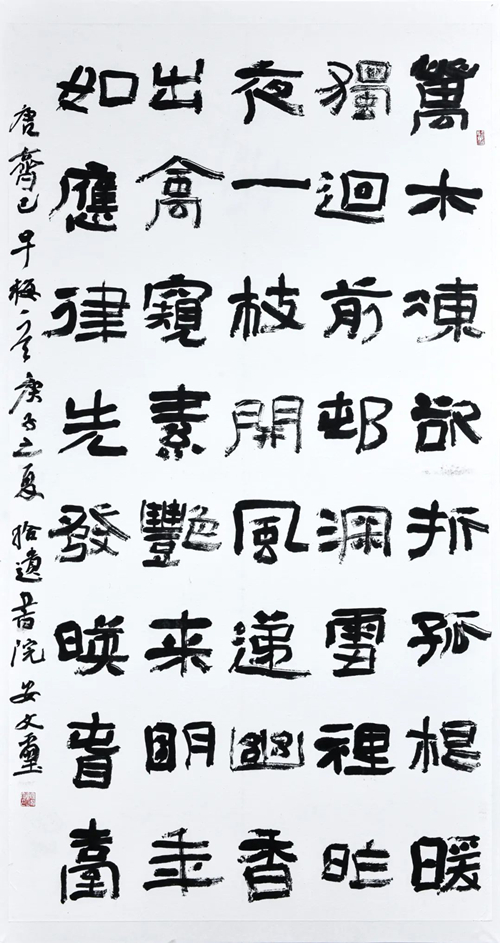 萬木凍欲折孤根暖
獨迴前邨深雪裡昨
夜一枝開風遞幽香
出禽窺素艷来明年
如應律先發暎春臺
唐齊己早梅一首庚子之夏拾遺書院安文